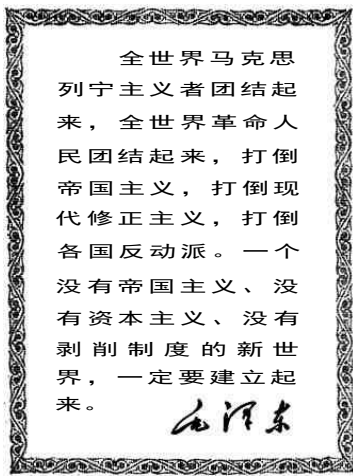 全世界马克思
列宁主义者团结起
来，全世界革命人
民团结起来，打倒
帝国主义，打倒现
代修正主义，打倒
各国反动派。一个
没有帝国主义、没
有资本主义、没有
剥削制度的新世
界，一定要建立起
来。
毛泽东